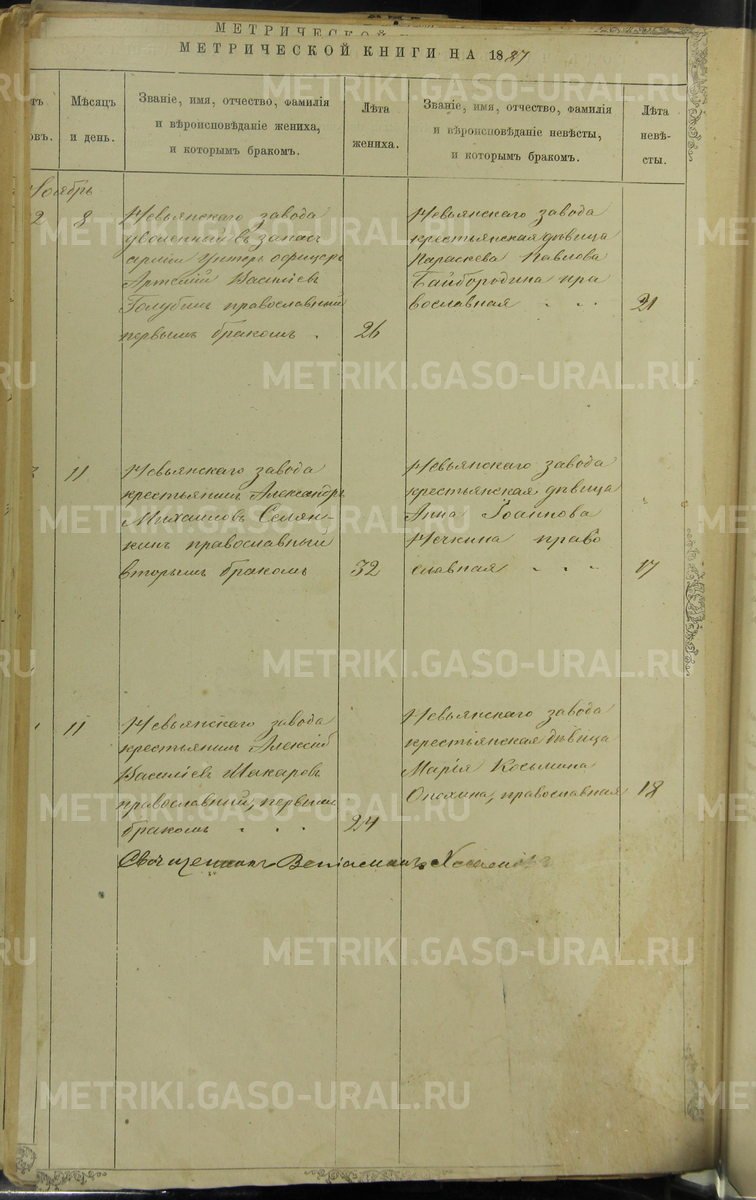 МЕТРИЧЕСКОЙ
МЕТРИЧЕСКОЙ КНИГИ НА 1887
Мѣсяцъ
и день.
Званіе, имя, отчество, фамилія
и вѣроисповѣданіе жениха,
и которымъ бракомъ.
Лѣта
жениха.
Званіе, имя, отчество, фамилія
и вѣроисповѣданіе невѣсты,
и которымъ бракомъ.
Лѣта
невѣ-
сты.
Ноябрь
2
8
Невьянскаго завода
уволенный въ запасъ
арміи Унтеръ офицеръ
Василіевъ
Голубин православный
первымъ бракомъ .
26
Невьянскаго завода
крестьянская дѣвица
Параскева Павлова
Байбородина пра
вославная . . .
21
11
Невьянскаго завода
крестьянинъ Александръ
Михаиловъ Селян-
кинъ православный
вторымъ бракомъ
32
Невьянскаго завода
крестьянская дѣвица
Анна Іоаннова
право
славная . . .
17
11
Невьянскаго завода
крестьянинъ Алексій
Василіевъ Макаровъ
православный, первымъ
бракомъ . . .
24
Невьянскаго завода
крестьянская дѣвица
Марія Косьмина
православная
18
Священникъ Веніаминъ
METRIKI.GASO-URAL.RU